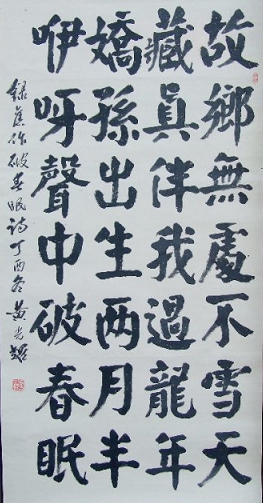 故鄉無處不雪天
藏真伴我過龍年
嬌孫出生两月半
咿呀聲中破春眠
錄舊作破春眠詩丁酉冬黃光耀